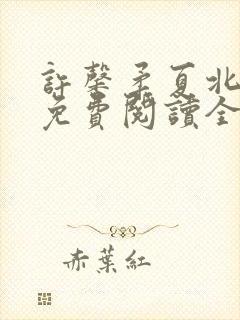 許馨矛夏北
免費閱讀全
赤葉紅